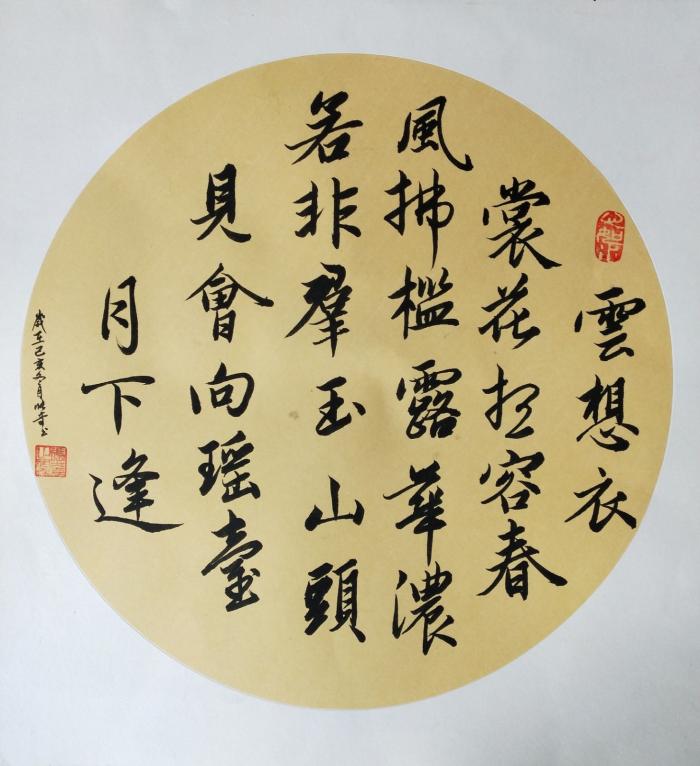 雲想衣
裳花想容春
風拂檻露華濃
若非羣玉山頭
見會向瑶臺
月下逢
歲在己亥 月 书